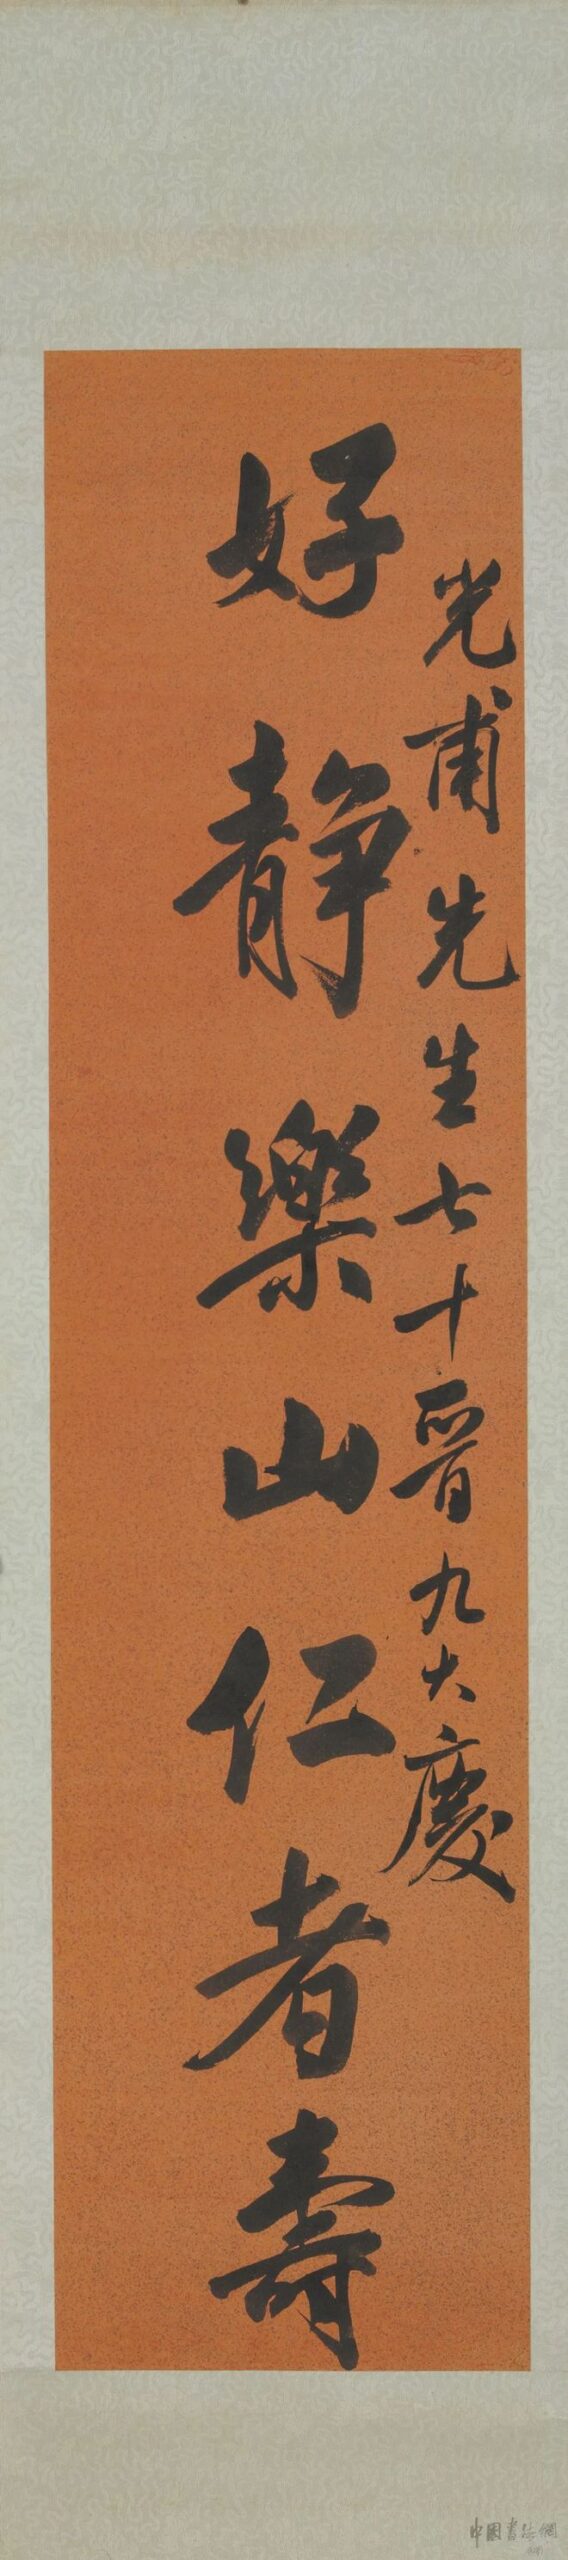 光甫先生七十晋九大慶
好靜樂山仁者壽
中國書法網